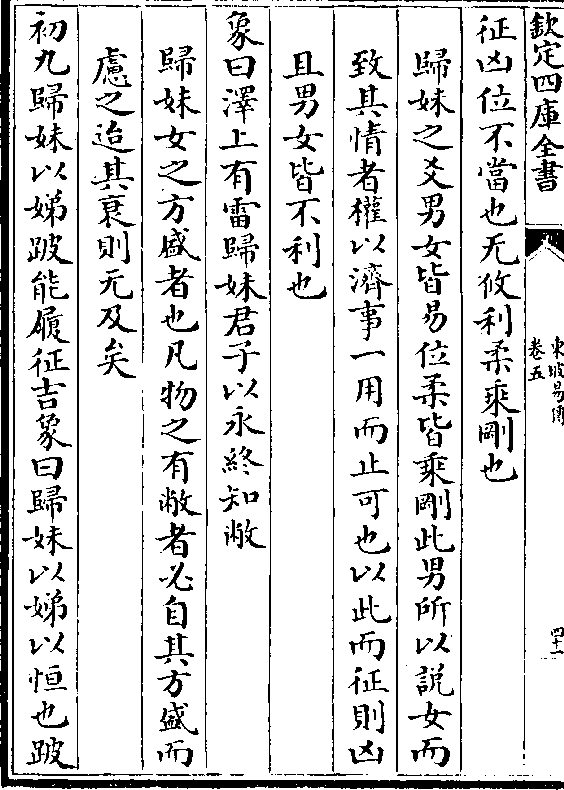 欽定四庫全書
東坡易傳
卷五
四十一
征凶位不當也无攸利柔乘剛也
歸妹之爻男女皆易位柔皆乘剛此男所以説女而
致其情者權以濟事一用而止可也以此而征則凶
且男女皆不利也
象曰澤上有雷歸妹君子以永終知敝
歸妹女之方盛者也凡物之有敝者必自其方盛而
慮之迨其衰則无及矣
初九歸妹以娣跛能履征吉象曰歸妹以娣以恒也跛